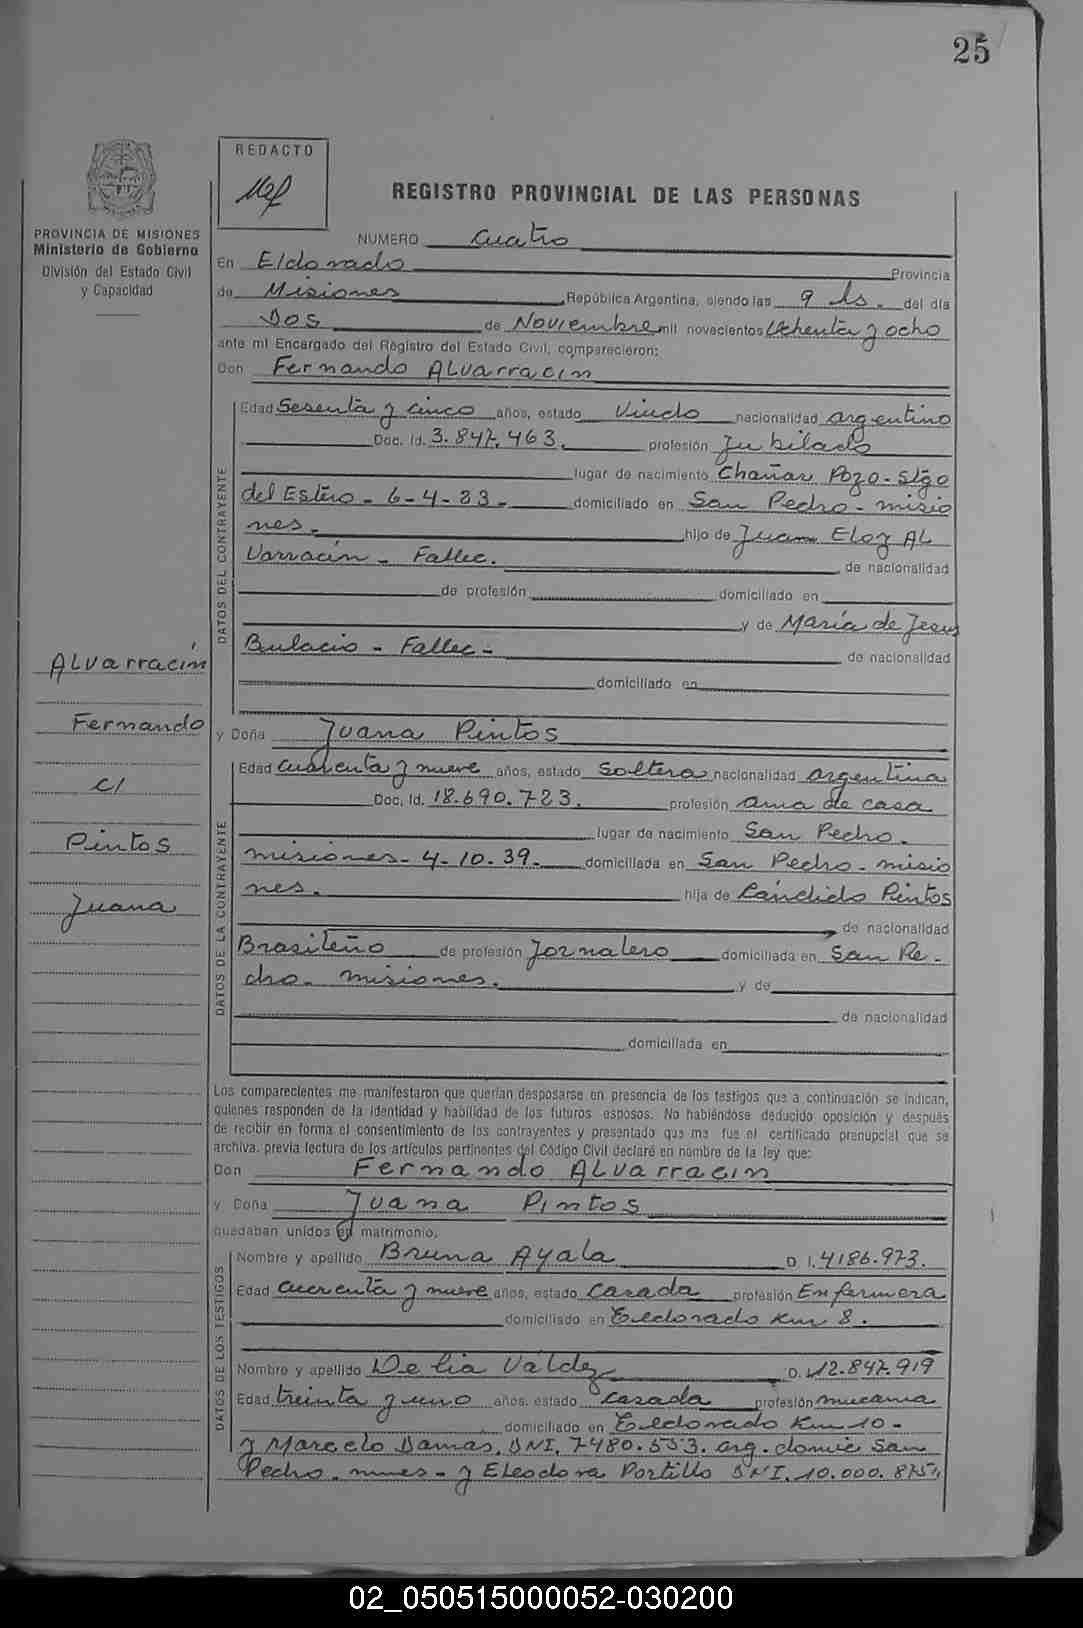 25
REDACTO
REGISTRO PROVINCIAL DE LAS PERSONAS
PROVINCIA DE MISIONES
Ministerio de Gobierno
División del Estado Civil
y Capacidad
NUMERO cuatro
En Eldorado Provincia
de Misiones República Argentina, siendo las 9 hs. del día
Dos de Noviembre mil novecientos Ochenta y ocho
ante mi Encargado del Registro del Estado Civil, comparecieron:
Don Fernando ALvarracin
DATOS DEL CONTRAYENTE
Edad Sesenta y cinco años, estado Viudo nacionalidad argentino
Doc. Id. 3.847.463. profesión Jubilado
lugar de nacimiento Chañar Pozo - Stgo
del Estero - 6-4-23- domiciliado en San Pedro - misio
nes. hijo de Juan Eloy AL
varracín - Fallec. de nacionalidad
de profesión domiciliado en
y de María de Jesus
Bulacio - Fallec - de nacionalidad
domiciliado en
ALvarracín
Fernando
c/
Pintos
Juana
y Doña Juana Pintos
DATOS DE LA CONTRAYENTE
Edad cuarenta y nueve años, estado Soltera nacionalidad argentina
Doc. Id. 18.690.723. profesión ama de casa
lugar de nacimiento San Pedro.
misiones - 4-10-39- domiciliada en San Pedro - misio
nes. hija de Cándido Pintos
de nacionalidad
Brasileño de profesión Jornalero domiciliada en San Pe-
dro. misiones. y de
de nacionalidad
domiciliada en
Los comparecientes me manifestaron que querían desposarse en presencia de los testigos que a continuación se indican,
quienes responden de la identidad y habilidad de los futuros esposos. No habiéndose deducido oposición y después
de recibir en forma el consentimiento de los contrayentes y presentado que me fue el certificado prenupcial que se
archiva, previa lectura de los artículos pertinentes del Código Civil declaré en nombre de la ley que:
Don Fernando ALvarracin
y Doña Juana Pintos
quedaban unidos en matrimonio.
DATOS DE LOS TESTIGOS
Nombre y apellido Bruna Ayala D. I. 4186.973.
Edad cuarenta y nueve años, estado casada profesión Enfermera
domiciliado en Eldorado Km 8.
Nombre y apellido Delia Valdez D. I. 12.847.919
Edad treinta y uno años, estado casada profesión mucama
domiciliado en Eldorado Km 10-
y Marcelo Damas, DNI. 7480.553. arg. domic San
Pedro. mnes - y Eleodora Portillo DNI. 10.000.875
02_050515000052-030200